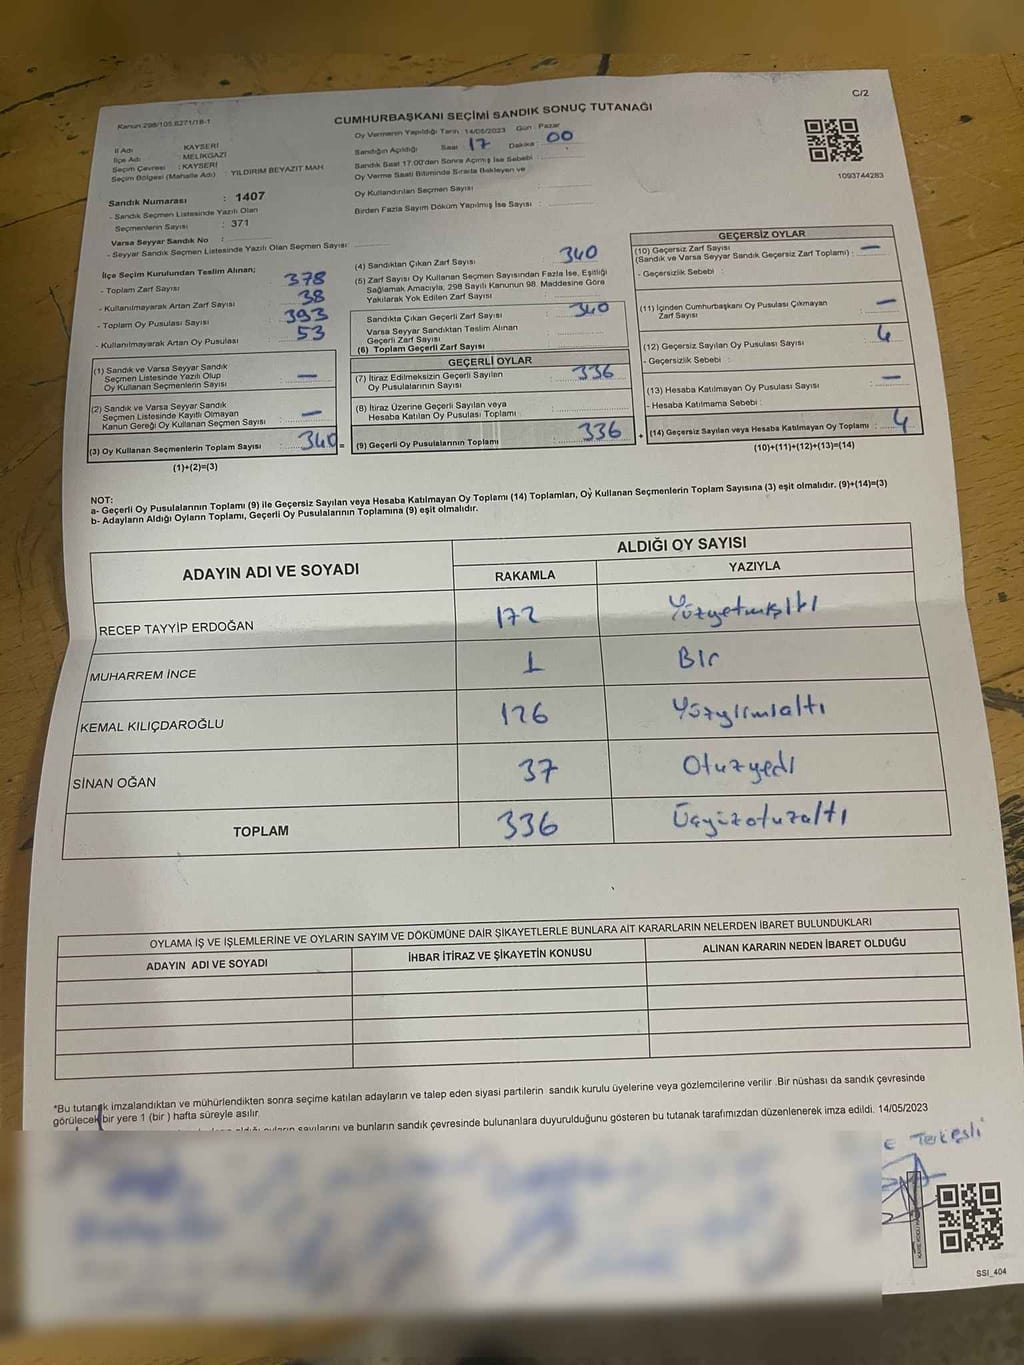 C/2
Kanun:298/105.6271/18-1
CUMHURBAŞKANI SEÇİMİ SANDIK SONUÇ TUTANAĞI
Oy Vermenin Yapıldığı Tarih: 14/05/2023 Gün : Pazar
Sandığın Açıldığı Saat : 17 Dakika : 00
Sandık Saat 17.00'den Sonra Açımış İse Sebebi :
Oy Verme Saati Bitiminde Sırada Bekleyen ve
Oy Kullandırılan Seçmen Sayısı :
Birden Fazla Sayım Döküm Yapılmış İse Sayısı :
1093744283
İl Adı : KAYSERİ
İlçe Adı : MELİKGAZİ
Seçim Çevresi : KAYSERİ
Seçim Bölgesi (Mahalle Adı) : YILDIRIM BEYAZIT MAH
Sandık Numarası : 1407
- Sandık Seçmen Listesinde Yazılı Olan
Seçmenlerin Sayısı : 371
Varsa Seyyar Sandık No :
- Seyyar Sandık Seçmen Listesinde Yazılı Olan Seçmen Sayısı:
İlçe Seçim Kurulundan Teslim Alınan;
- Toplam Zarf Sayısı : 378
- Kullanılmayarak Artan Zarf Sayısı : 38
- Toplam Oy Pusulası Sayısı : 393
- Kullanılmayarak Artan Oy Pusulası : 53
(1) Sandık ve Varsa Seyyar Sandık
Seçmen Listesinde Yazılı Olup
Oy Kullanan Seçmenlerin Sayısı : —
(2) Sandık ve Varsa Seyyar Sandık
Seçmen Listesinde Kayıtlı Olmayan
Kanun Gereği Oy Kullanan Seçmen Sayısı : —
(3) Oy Kullanan Seçmenlerin Toplam Sayısı : 340 =
(1)+(2)=(3)
(4) Sandıktan Çıkan Zarf Sayısı : 340
(5) Zarf Sayısı Oy Kullanan Seçmen Sayısından Fazla İse, Eşitliği
Sağlamak Amacıyla, 298 Sayılı Kanunun 98. Maddesine Göre
Yakılarak Yok Edilen Zarf Sayısı :
Sandıkta Çıkan Geçerli Zarf Sayısı : 340
Varsa Seyyar Sandıktan Teslim Alınan
Geçerli Zarf Sayısı :
(6) Toplam Geçerli Zarf Sayısı :
GEÇERLİ OYLAR
(7) İtiraz Edilmeksizin Geçerli Sayılan
Oy Pusulalarının Sayısı : 336
(8) İtiraz Üzerine Geçerli Sayılan veya
Hesaba Katılan Oy Pusulası Toplamı :
(9) Geçerli Oy Pusulalarının Toplamı : 336 +
GEÇERSİZ OYLAR
(10) Geçersiz Zarf Sayısı
(Sandık ve Varsa Seyyar Sandık Geçersiz Zarf Toplamı) : —
- Geçersizlik Sebebi :
(11) İçinden Cumhurbaşkanı Oy Pusulası Çıkmayan
Zarf Sayısı : —
(12) Geçersiz Sayılan Oy Pusulası Sayısı : 4
- Geçersizlik Sebebi :
(13) Hesaba Katılmayan Oy Pusulası Sayısı : —
- Hesaba Katılmama Sebebi :
(14) Geçersiz Sayılan veya Hesaba Katılmayan Oy Toplamı : 4
(10)+(11)+(12)+(13)=(14)
NOT:
a- Geçerli Oy Pusulalarının Toplamı (9) ile Geçersiz Sayılan veya Hesaba Katılmayan Oy Toplamı (14) Toplamları, Oy Kullanan Seçmenlerin Toplam Sayısına (3) eşit olmalıdır. (9)+(14)=(3)
b- Adayların Aldığı Oyların Toplamı, Geçerli Oy Pusulalarının Toplamına (9) eşit olmalıdır.
ADAYIN ADI VE SOYADI ALDIĞI OY SAYISI
RAKAMLA YAZIYLA
RECEP TAYYİP ERDOĞAN 172 Yüzyetmişiki
MUHARREM İNCE 1 Bir
KEMAL KILIÇDAROĞLU 126 Yüzyirmialtı
SİNAN OĞAN 37 Otuzyedi
TOPLAM 336 Üçyüzotuzaltı
OYLAMA İŞ VE İŞLEMLERİNE VE OYLARIN SAYIM VE DÖKÜMÜNE DAİR ŞİKAYETLERLE BUNLARA AİT KARARLARIN NELERDEN İBARET BULUNDUKLARI
ADAYIN ADI VE SOYADI İHBAR İTİRAZ VE ŞİKAYETİN KONUSU ALINAN KARARIN NEDEN İBARET OLDUĞU
*Bu tutanak imzalandıktan ve mühürlendikten sonra seçime katılan adayların ve talep eden siyasi partilerin sandık kurulu üyelerine veya gözlemcilerine verilir .Bir nüshası da sandık çevresinde
görülecek bir yere 1 (bir ) hafta süreyle asılır.
sayılarını ve bunların sandık çevresinde bulunanlara duyurulduğunu gösteren bu tutanak tarafımızdan düzenlenerek imza edildi. 14/05/2023
SSI_404